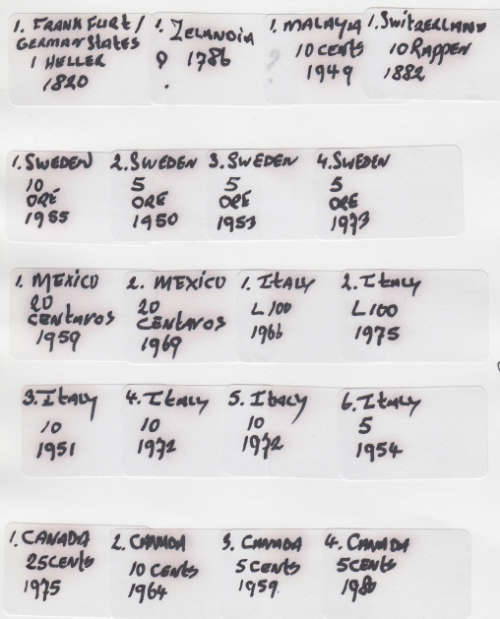 1. FRANKFURT/
GERMAN STATES
1 HELLER
1820
1. ZELANDIA
? 1786
1. MALAYIA
? 10 CENTS
1949
1. SWITZERLAND
10 RAPPEN
1882
1. SWEDEN
10
ORÉ
1955
2. SWEDEN
5
ORE
1950
3. SWEDEN
5
ORE
1953
4. SWEDEN
5
ORE
1973
1. MEXICO
20
CENTAVOS
1959
2. MEXICO
20
CENTAVOS
1969
1. ITALY
L 100
1966
2. ITALY
L 100
1975
3. ITALY
10
1951
4. ITALY
10
1972
5. ITALY
10
1972
6. ITALY
5
1954
1. CANADA
25 CENTS
1975
2. CANADA
10 CENTS
1964
3. CANADA
5 CENTS
1959
4. CANADA
5 CENTS
1980